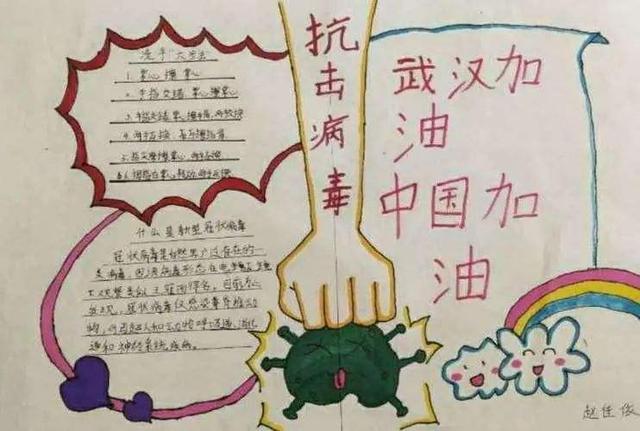 洗手"六步法"
1. 掌心擦掌心
2. 手指交错,掌心擦掌心
3. 手指交错,掌心擦手背,两手互换
4. 两手互握,互擦指背
5. 指尖摩擦掌心,两手互换
6. 拇指在掌心转动,两手互换
什么是新型冠状病毒
冠状病毒是自然界广泛存在的一
类病毒,因该病毒形态在电镜
下观察类似王冠而得名。目前为止
发现,冠状病毒仅感染脊椎动
物,可引起人和动物呼吸道、消化
道和神经系统疾病。
抗击病毒
武汉加
油
中国加
油
赵佳俊